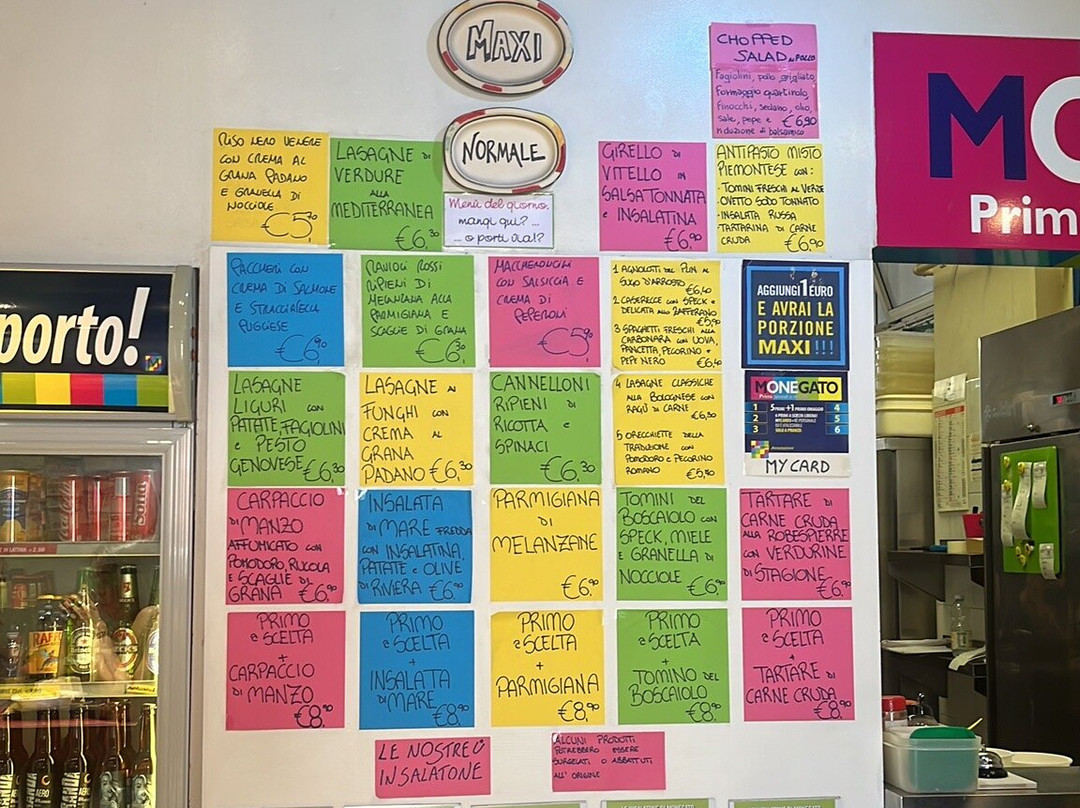 MAXI
CHOPPED
SALAD DI POLLO
Fagiolini, pollo grigliato,
formaggio quartirolo,
finocchi, sedano, olio,
sale, pepe e €6,90
riduzione di balsamico
MO
Prim
NORMALE
Menù del giorno,
mangi qui? ...
... o porti via!?
RISO NERO VENERE
CON CREMA AL
GRANA PADANO
E GRANELLA DI
NOCCIOLE
€5,90
LASAGNE DI
VERDURE
ALLA
MEDITERRANEA
€6,30
GIRELLO DI
VITELLO IN
SALSA TONNATA
E INSALATINA
€6,90
ANTIPASTO MISTO
PIEMONTESE CON:
- TOMINI FRESCHI AL VERDE
- OVETTO SODO TONNATO
- INSALATA RUSSA
- TARTARINA DI CARNE
CRUDA €6,90
porto!
PACCHERI CON
CREMA DI SALMONE
E STRACCIATELLA
PUGLIESE
€6,90
RAVIOLI ROSSI
RIPIENI DI
MELANZANA ALLA
PARMIGIANA E
SCAGLIE DI GRANA
€6,30
MACCHERONCINI
CON SALSICCIA E
CREMA DI
PEPERONI
€5,90
1 AGNOLOTTI DEL PLIN AL
SUGO D'ARROSTO
€6,40
2 CASERECCE CON SPECK E
DELICATA ALLO ZAFFERANO
€5,90
3 SPAGHETTI FRESCHI ALLA
CARBONARA CON UOVA,
PANCETTA, PECORINO E
PEPE NERO €6,40
AGGIUNGI 1 EURO
E AVRAI LA
PORZIONE
MAXI!!!
LASAGNE
LIGURI CON
PATATE, FAGIOLINI
E PESTO
GENOVESE €6,30
LASAGNE AI
FUNGHI CON
CREMA AL
GRANA
PADANO €6,30
CANNELLONI
RIPIENI DI
RICOTTA E
SPINACI
€6,30
4 LASAGNE CLASSICHE
ALLA BOLOGNESE CON
RAGÙ DI CARNE
€6,30
5 ORECCHIETTE DELLA
TRADIZIONE CON
POMODORO E PECORINO
ROMANO €5,40
MONEGATO
5 PRIMI +1 PRIMO OMAGGIO
1 2 3
4 5 6
MY CARD
CARPACCIO
DI MANZO
AFFUMICATO CON
POMODORO, RUCOLA
E SCAGLIE DI
GRANA €6,90
INSALATA
DI MARE FREDDA
CON INSALATINA,
PATATE E OLIVE
DI RIVIERA €6,90
PARMIGIANA
DI
MELANZANE
€6,90
TOMINI DEL
BOSCAIOLO CON
SPECK, MIELE
E GRANELLA DI
NOCCIOLE
€6,90
TARTARE DI
CARNE CRUDA
ALLA ROBESPIERRE
CON VERDURINE
DI STAGIONE
€6,90
PRIMO
A SCELTA
+
CARPACCIO
DI MANZO
€8,90
PRIMO
A SCELTA
+
INSALATA
DI MARE
€8,90
PRIMO
A SCELTA
+
PARMIGIANA
€8,90
PRIMO
A SCELTA
+
TOMINO DEL
BOSCAIOLO
€8,90
PRIMO
A SCELTA
+
TARTARE DI
CARNE CRUDA
€8,90
LE NOSTRE
INSALATONE
ALCUNI PRODOTTI
POTREBBERO ESSERE
SURGELATI O ABBATTUTI
ALL'ORIGINE